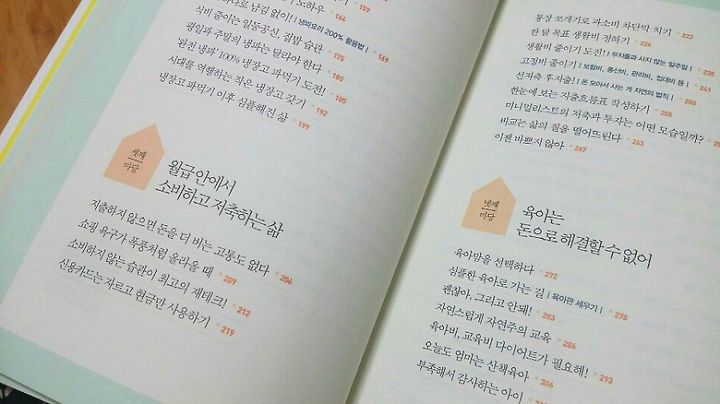 노하우 164
남김 없이! | 냉파요리 200% 활용법 | 169
식비 줄이는 일등공신, 집밥 습관 175
평일과 주말의 냉파는 달라야 한다 180
'완전 냉파' 100% 냉장고 파먹기 도전! 185
시대를 역행하는 작은 냉장고 갖기 192
냉장고 파먹기 이후 심플해진 삶 199
셋째
마당
월급 안에서
소비하고 저축하는 삶
지출하지 않으면 돈을 더 버는 고통도 없다 206
쇼핑 욕구가 폭풍처럼 올라올 때 209
소비하지 않는 습관이 최고의 재테크! 212
신용카드는 자르고 현금만 사용하기 219
통장 쪼개기로 과소비 차단막 치기 222
한 달 목표 생활비 정하기 226
생활비 줄이기 도전!! | 무지출과 사지 않는 일주일 | 235
고정비 줄이기 | 보험비, 통신비, 관리비, 침대비 등 | 241
선저축 후지출! | 돈 모아서 사는 게 자연의 법칙 | 250
한눈에 보는 지출흐름표 작성하기 255
미니멀리스트의 저축과 투자는 어떤 모습일까?
비교는 삶의 질을 떨어뜨린다 263
이젠 바쁘지 않아 267
넷째
마당
육아는
돈으로 해결할 수 없어
육아맘을 선택하다 272
심플한 육아로 가는 길 | 육아관 세우기 | 278
괜찮아, 그리고 안돼! 283
자연스럽게 자연주의 교육 286
육아비, 교육비 다이어트가 필요해! 293
오늘도 엄마는 산책육아 306
부족해서 감사하는 아이